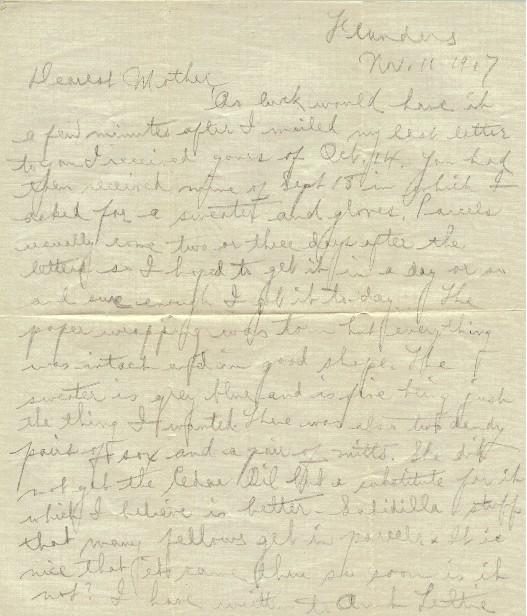 Flanders
Nov. 11 1917
Dearest Mother
As luck would have it
a few minutes after I mailed my last letter
to you I received yours of Oct. 14. You had
then received mine of Sept 15 in which I
asked for a sweater and gloves. Parcels
usually come two or three days after the
letters so I hoped to get it in a day or so
and sure enough I got it to-day. The
paper wrapping was torn but everything
was intact and in good shape. The
sweater is grey blue and is fine being just
the thing I wanted. There was also two dandy
pairs of sox and a pair of mitts. She did
not get the Cedar Oil but a substitute for it
which I believe is better - Sabidilla stuff
that many fellows get in parcels. It is
nice that it came thru so soon is it
not? I have to Aunt